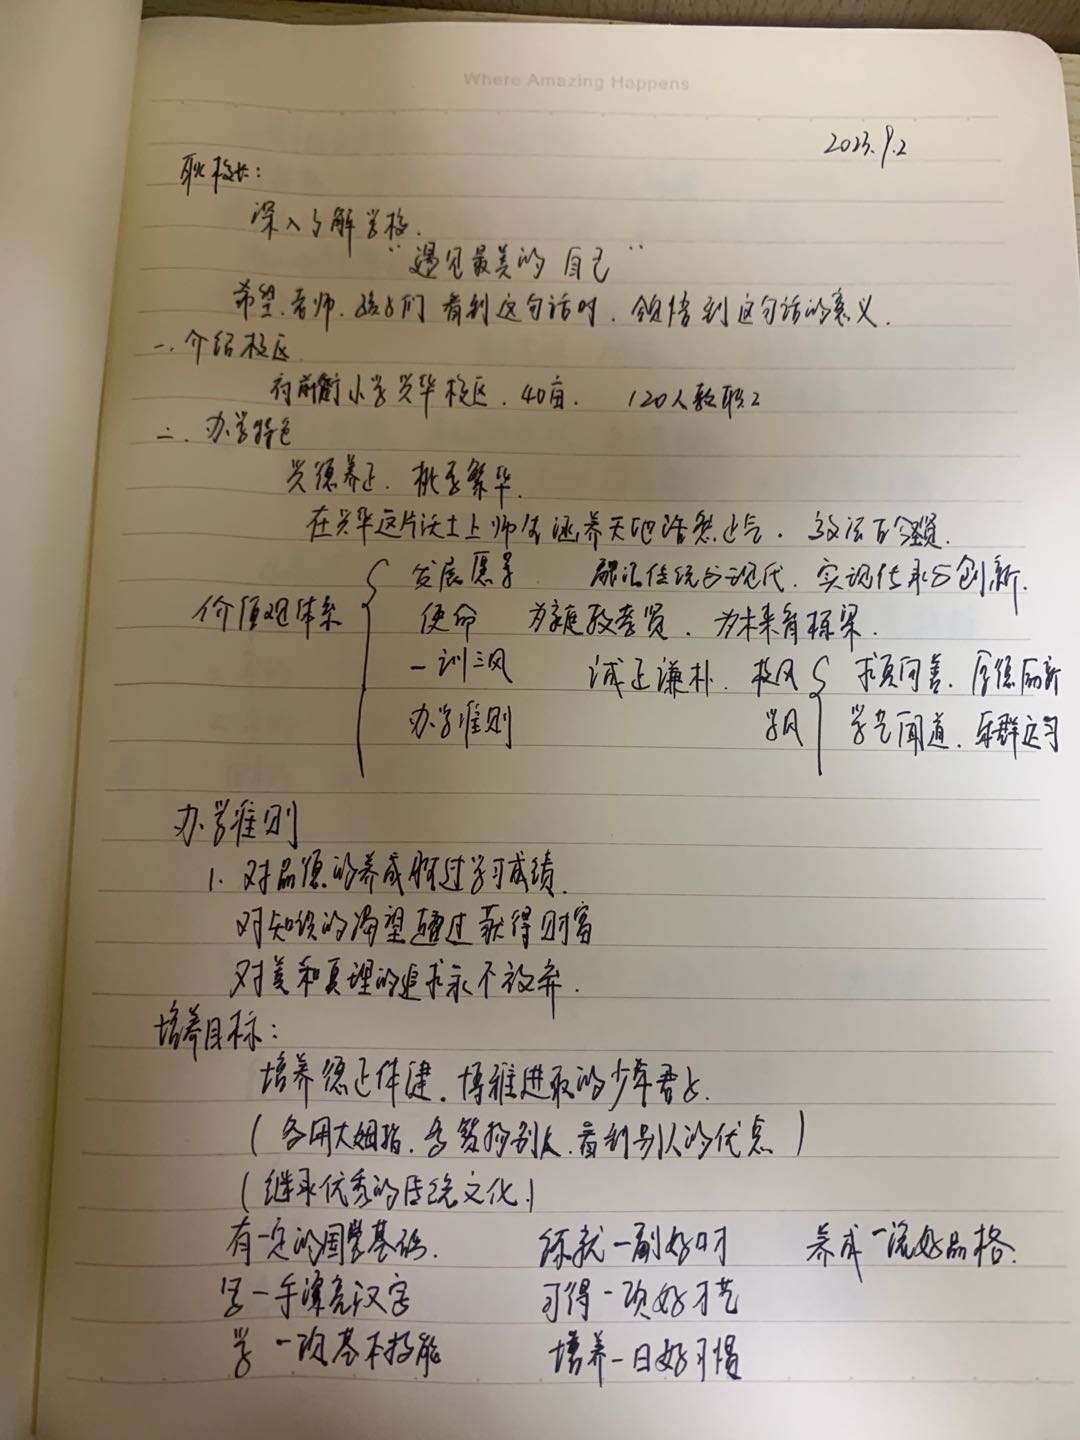 Where Amazing Happens
2023.9.2
耿校长:
深入了解学校.
"遇见最美的自己"
希望.老师.孩子们看到这句话时.领悟到这句话的意义.
一.介绍校区
府前街小学兴华校区.40亩. 120人教职工
二.办学特色
兴德养正.桃李繁华.
在兴华这片沃土上师生涵养天地浩然正气.效法百贤.
价值观体系
发展愿景 融汇传统与现代.实现传承与创新.
使命 为家庭教孝贤.为未来育栋梁.
一训三风 诚正谦朴.校风 求真向善.厚德历新
办学准则 学风 学艺闻道.乐群达习
办学准则
1.对品德的养成胜过学习成绩.
对知识的渴望超过获得财富
对美和真理的追求永不放弃.
培养目标:
培养德正体健.博雅进取的少年君子.
(多用大姆指.多赞扬别人.看到别人的优点)
(继承优秀的传统文化.)
有一定的国学基础. 练就一副好口才 养成一流好品格.
写一手漂亮汉字 习得一项好才艺
学一项基本技能 培养一日好习惯